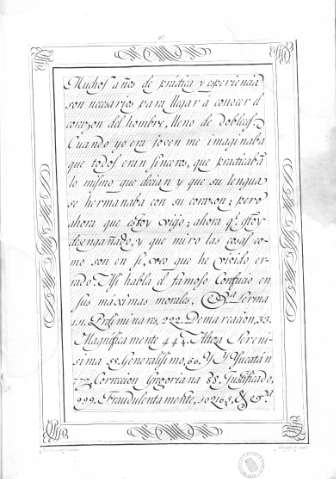 Muchos años de práctica y esperiencia
son necesarios para llegar a conocer el
corazon del hombre, lleno de doblezes.
Cuando yo era joven me imaginaba
que todos eran sinceros, que practicabā
lo mismo que decian y que su lengua
se hermanaba con su corazon; pero
ahora que estoy viejo; ahora q.e estoy
desengañado, y que miro las cosas co-
mo son en sí, veo que he vivido er-
rado. Así habla el famoso Confucio en
sus máximas morales.
Preliminares, 222. Demarcacion, 33.
Magníficamente 444. Alteza Sereni-
sima 55. Generalísimo, 66. Y Y Yucatán
777. Correccion Gregoriana 88. Justificado,
999. Fraudulentamente,